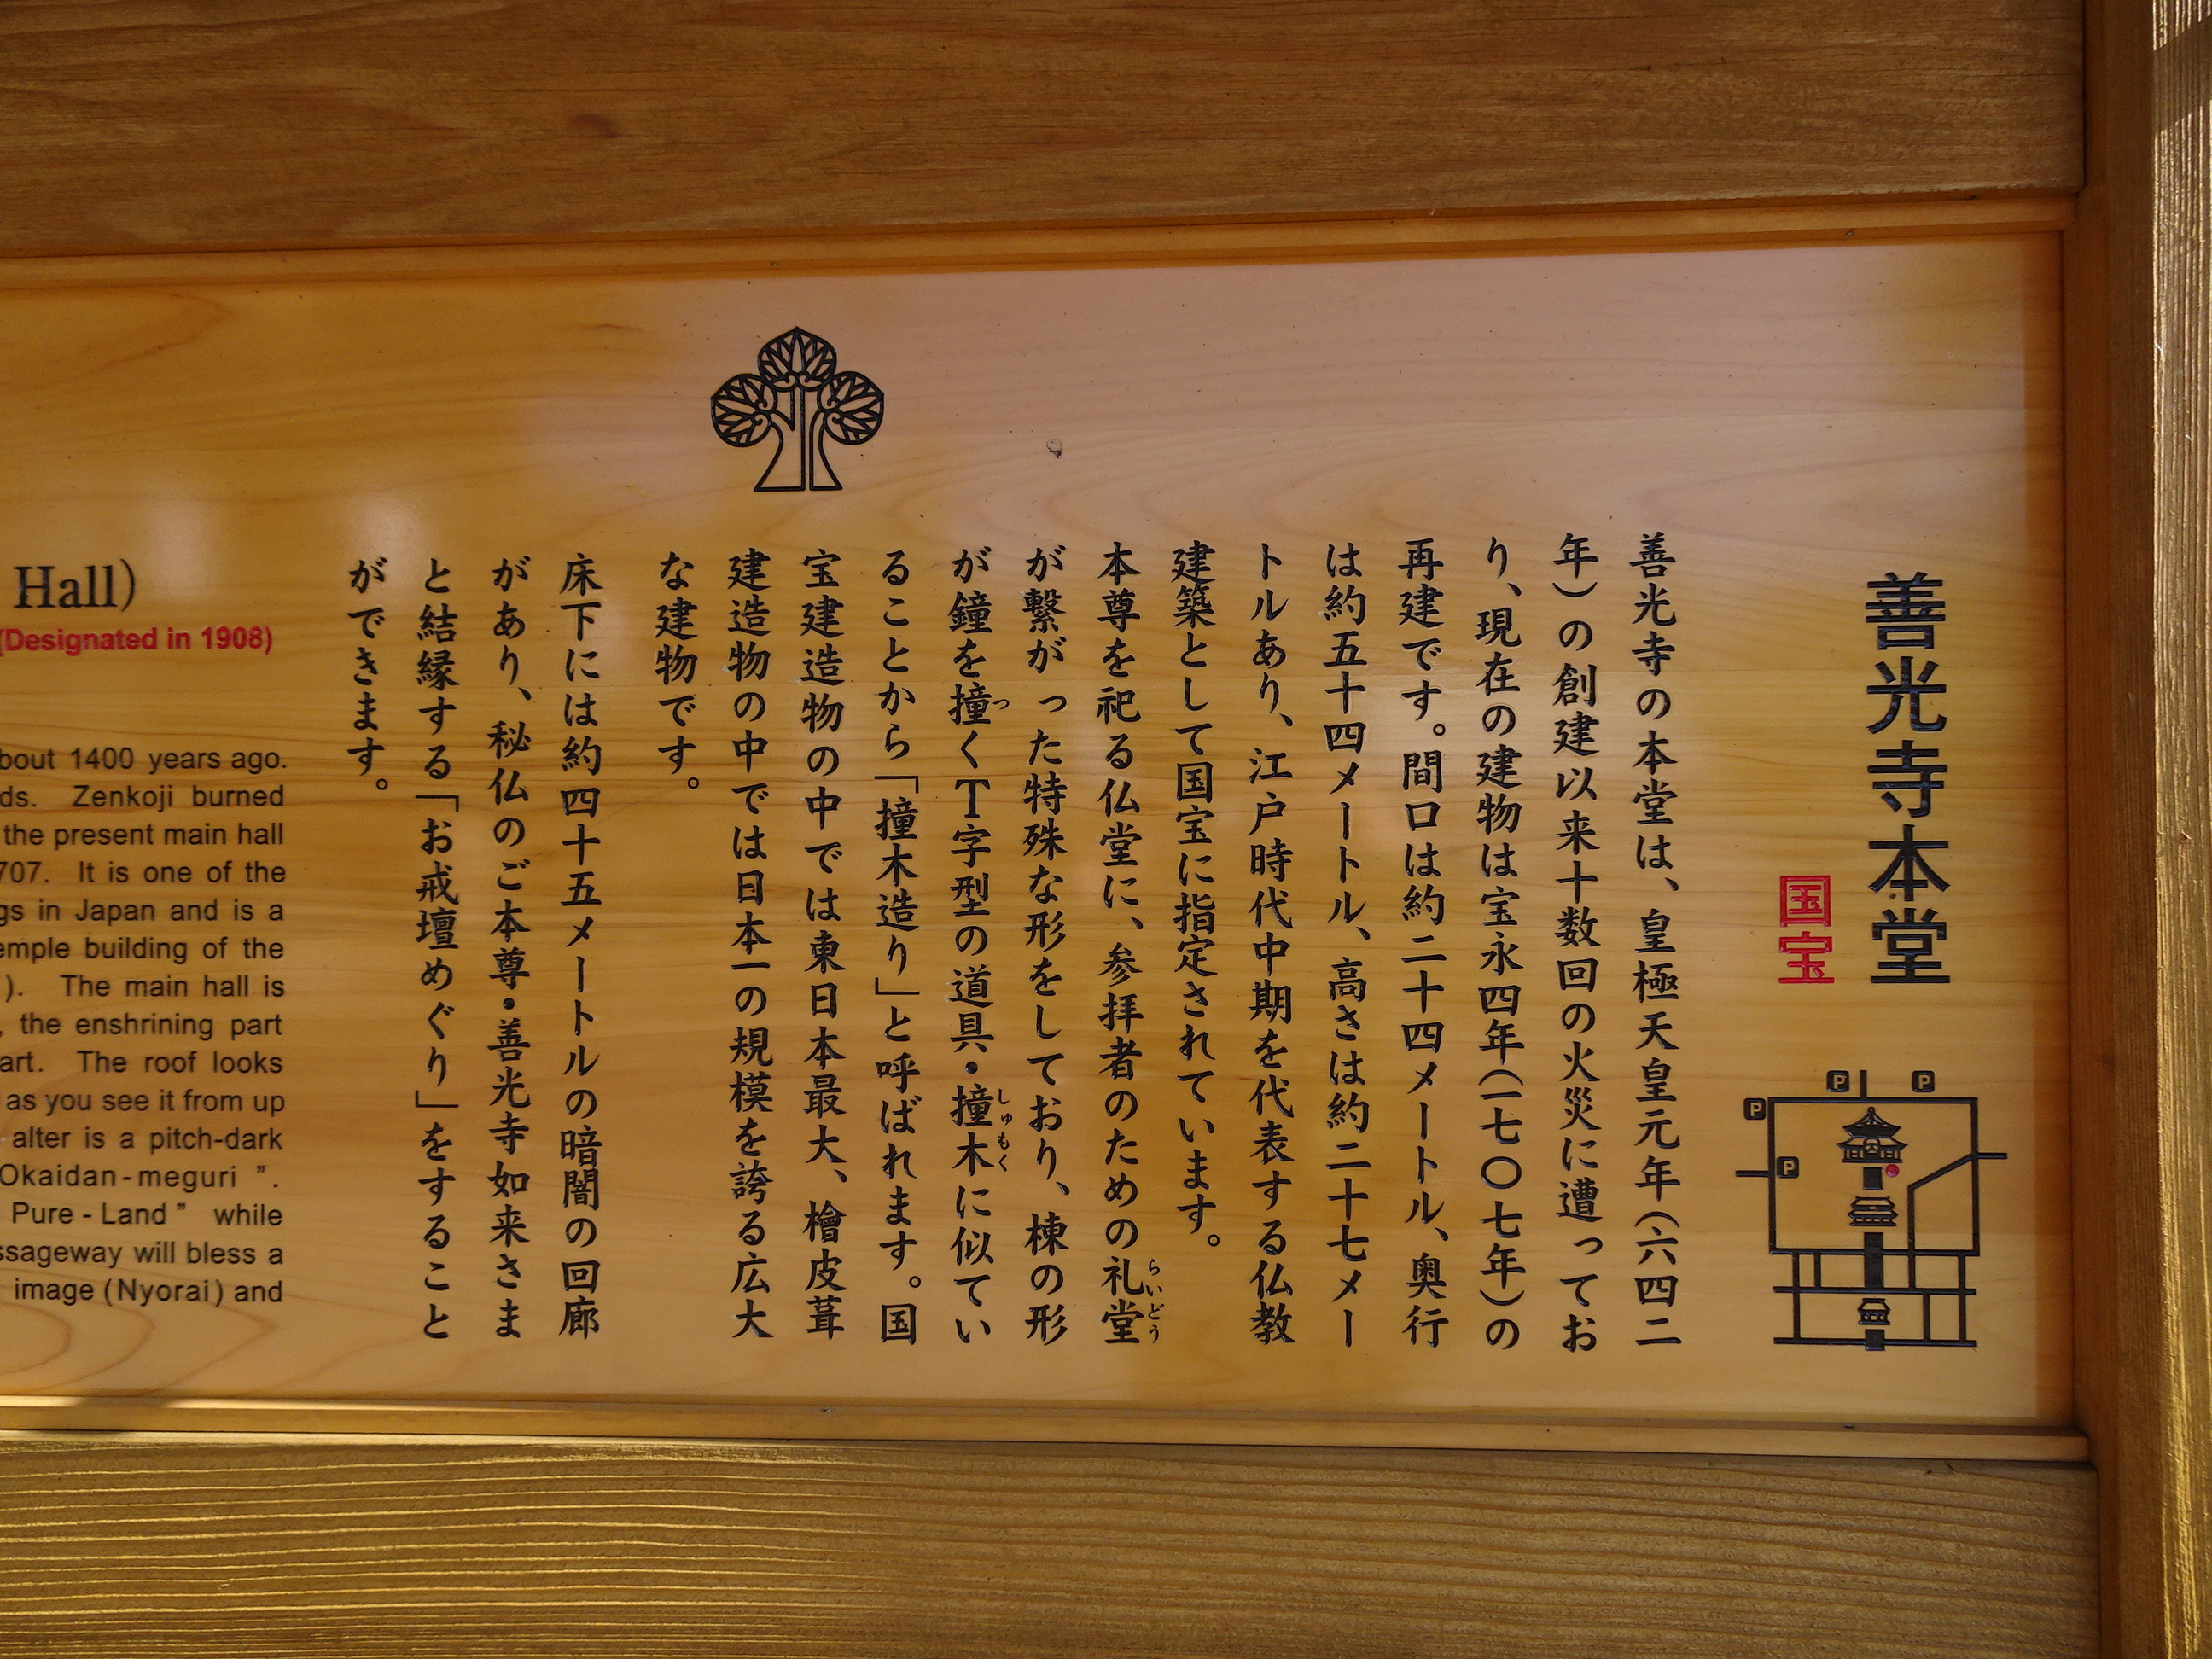 善光寺本堂
国宝
P
P
P
P
善光寺の本堂は、皇極天皇元年(六四二
年)の創建以来十数回の火災に遭ってお
り、現在の建物は宝永四年(一七〇七年)の
再建です。間口は約二十四メートル、奥行
は約五十四メートル、高さは約二十七メー
トルあり、江戸時代中期を代表する仏教
建築として国宝に指定されています。
本尊を祀る仏堂に、参拝者のための礼堂
らいどう
が繋がった特殊な形をしており、棟の形
が鐘を撞くT字型の道具・撞木に似てい
つ
しゅもく
ることから「撞木造り」と呼ばれます。国
宝建造物の中では東日本最大、檜皮葺
建造物の中では日本一の規模を誇る広大
な建物です。
床下には約四十五メートルの暗闇の回廊
があり、秘仏のご本尊・善光寺如来さま
と結縁する「お戒壇めぐり」をすること
ができます。
Hall)
(Designated in 1908)
bout 1400 years ago.
ds. Zenkoji burned
the present main hall
707. It is one of the
gs in Japan and is a
emple building of the
). The main hall is
, the enshrining part
art. The roof looks
as you see it from up
alter is a pitch-dark
Okaidan-meguri ”.
Pure - Land ” while
ssageway will bless a
image (Nyorai) and